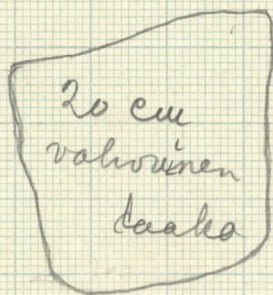 20 cm
vahvuinen
laaka